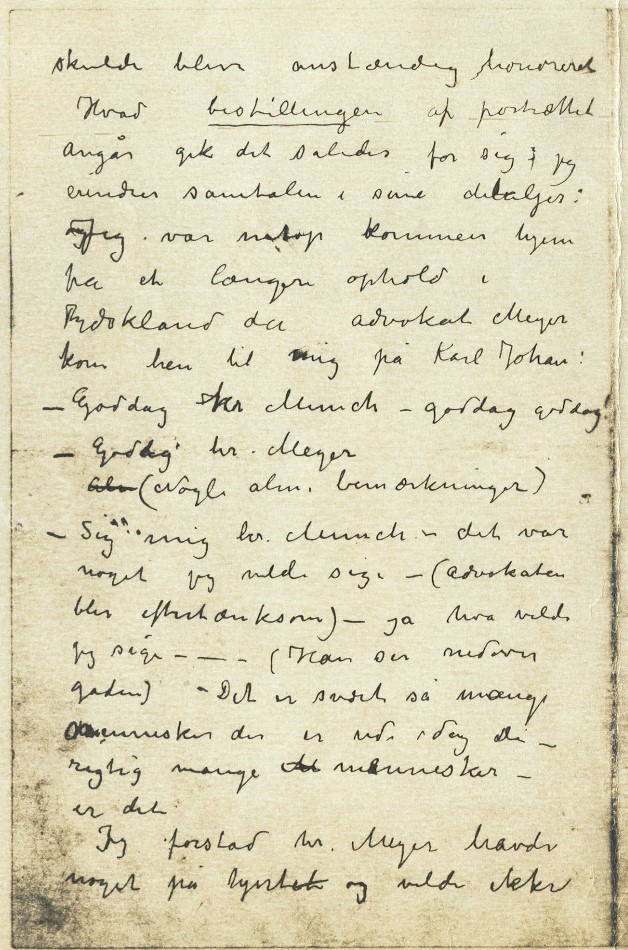 skulde blive anstændig honoreret
Hvad bestillingen af portrættet
angår gik det således for sig; jeg
erindrer samtalen i sine detaljer:
Jeg var netop kommen hjem
fra et længere ophold i
Tydskland da advokat Meyer
kom hen til mig på Karl Johan:
– Goddag Hr Munch – goddag goddag!
– Goddag hr. Meyer
alm (Nogle alm. bemærkninger)
– Sig mig hr. Munch – det var
noget jeg vilde sige – (advokaten
blir eftertænksom) – ja hva vilde
jeg sige – – – (Han ser nedover
gaden) – Det er svært så mange
mennesker der er ude idag De –
rigtig mange mennesker –
er det
Jeg forstod hr. Meyer havde
noget på hjertet og vilde ikke